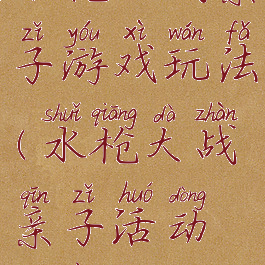 zǐ yóu xì wán fǎ
子游戏玩法
shuǐ qiāng dà zhàn
（水枪大战
qīn zǐ huó dòng
亲子活动